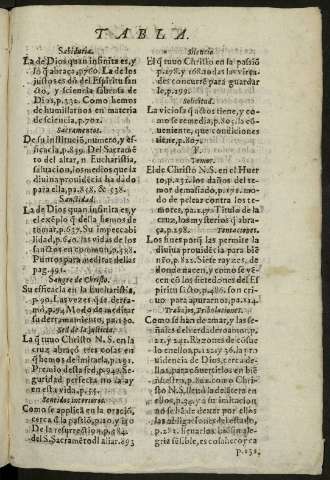 TABLA.
Sabiduria.
La de Dios quan infinita es, y
lo q̃ abraça, p.760. La de los
justos es don del Espiritu san
cto, y sciencia sabrosa de
Dios, p.332. Como hemos
de humillarnos en materia
de sciencia, p.702.
Sacramentos.
De su institució, numero, y ef-
ficacia, p.859. Del Sacramē
to del altar, u Eucharistia,
saluacion, los medios que la
diuina prouidécia ha dado
para ella, pa.858. & 538.
Sanctidad.
La de Dios quan infinita es, y
el exēplo q̃ della hemos de
tomar, p.657. Su impeccabi
lidad, p.640. las vidas de los
sanctos en cōmun, p.528.
Puntos para meditar dellas
pag.491.
Sangre de Christo.
Su efficacia en la Eucharistia,
p.90. Las vezes que se derra-
mó, p.94. Modo de meditar
su derramamiento, pa.130.
Sed de la justicia.
La q̃ tuuo Christo N.S. en la
cruz abraçó tres cosas en
q̃ hemos de imitarla, p.191.
Premio desta sed, p.949. Se-
guridad perfecta no la ay
en esta vida, p.55.
Sentidos interiores.
Como se applica en la oració,
cerca d̃ la passió, p.10. y 110
De la resurrectiō, p.484.
del S. Sacramēto dl̃ altar, 893
Silencio.
El q̃ tuuo Christo en la passió
p.178. y 168. todas las virtu-
des concurrē para guardar
le, p.199.
Solicitud.
La viciosa q̃ actos tiene, y co-
mo se remedia, p.805. la có-
ueniente, que condiciones
tiene, p.807.
T.
Temor.
El de Christo N.S. en el Huer
to p.237. los daños del te-
mor demasiado, p.172. mo-
do de pelear contra los te-
mores, pa.237. Titulo de la
cruz, los mysterios q̃ abra-
ça, p.198.
Tentaciones.
Los fines porq̃ las permite la
diuina prouidēcia para bie
nño, p.812. Siete rayzes, de
donde nacen, y como se vē-
cen cō los siete dones del Es
piritu sācto, p.486. son cri-
suto para apurarnos, pa.114.
Trabajos, Tribulaciones.
Como se hā de amar, y las se-
ñales del verdadero amor, p.
21. y 241. razones de cōsue
lo en ellos, p.21. 219. 36. 13. 70
silencio de Dios, cerca de-
llas, para cōuertirlos en biē
del alma, p.812. como Chri-
sto N.S. llenó la delantera en
ellos, p.34. y a su imitacion
no se ha de dexar por ellos
las obligaciones del estado,
p.281. lleuarlos bien sin ale-
gria sēsible, es cosa heroyca
p.132,